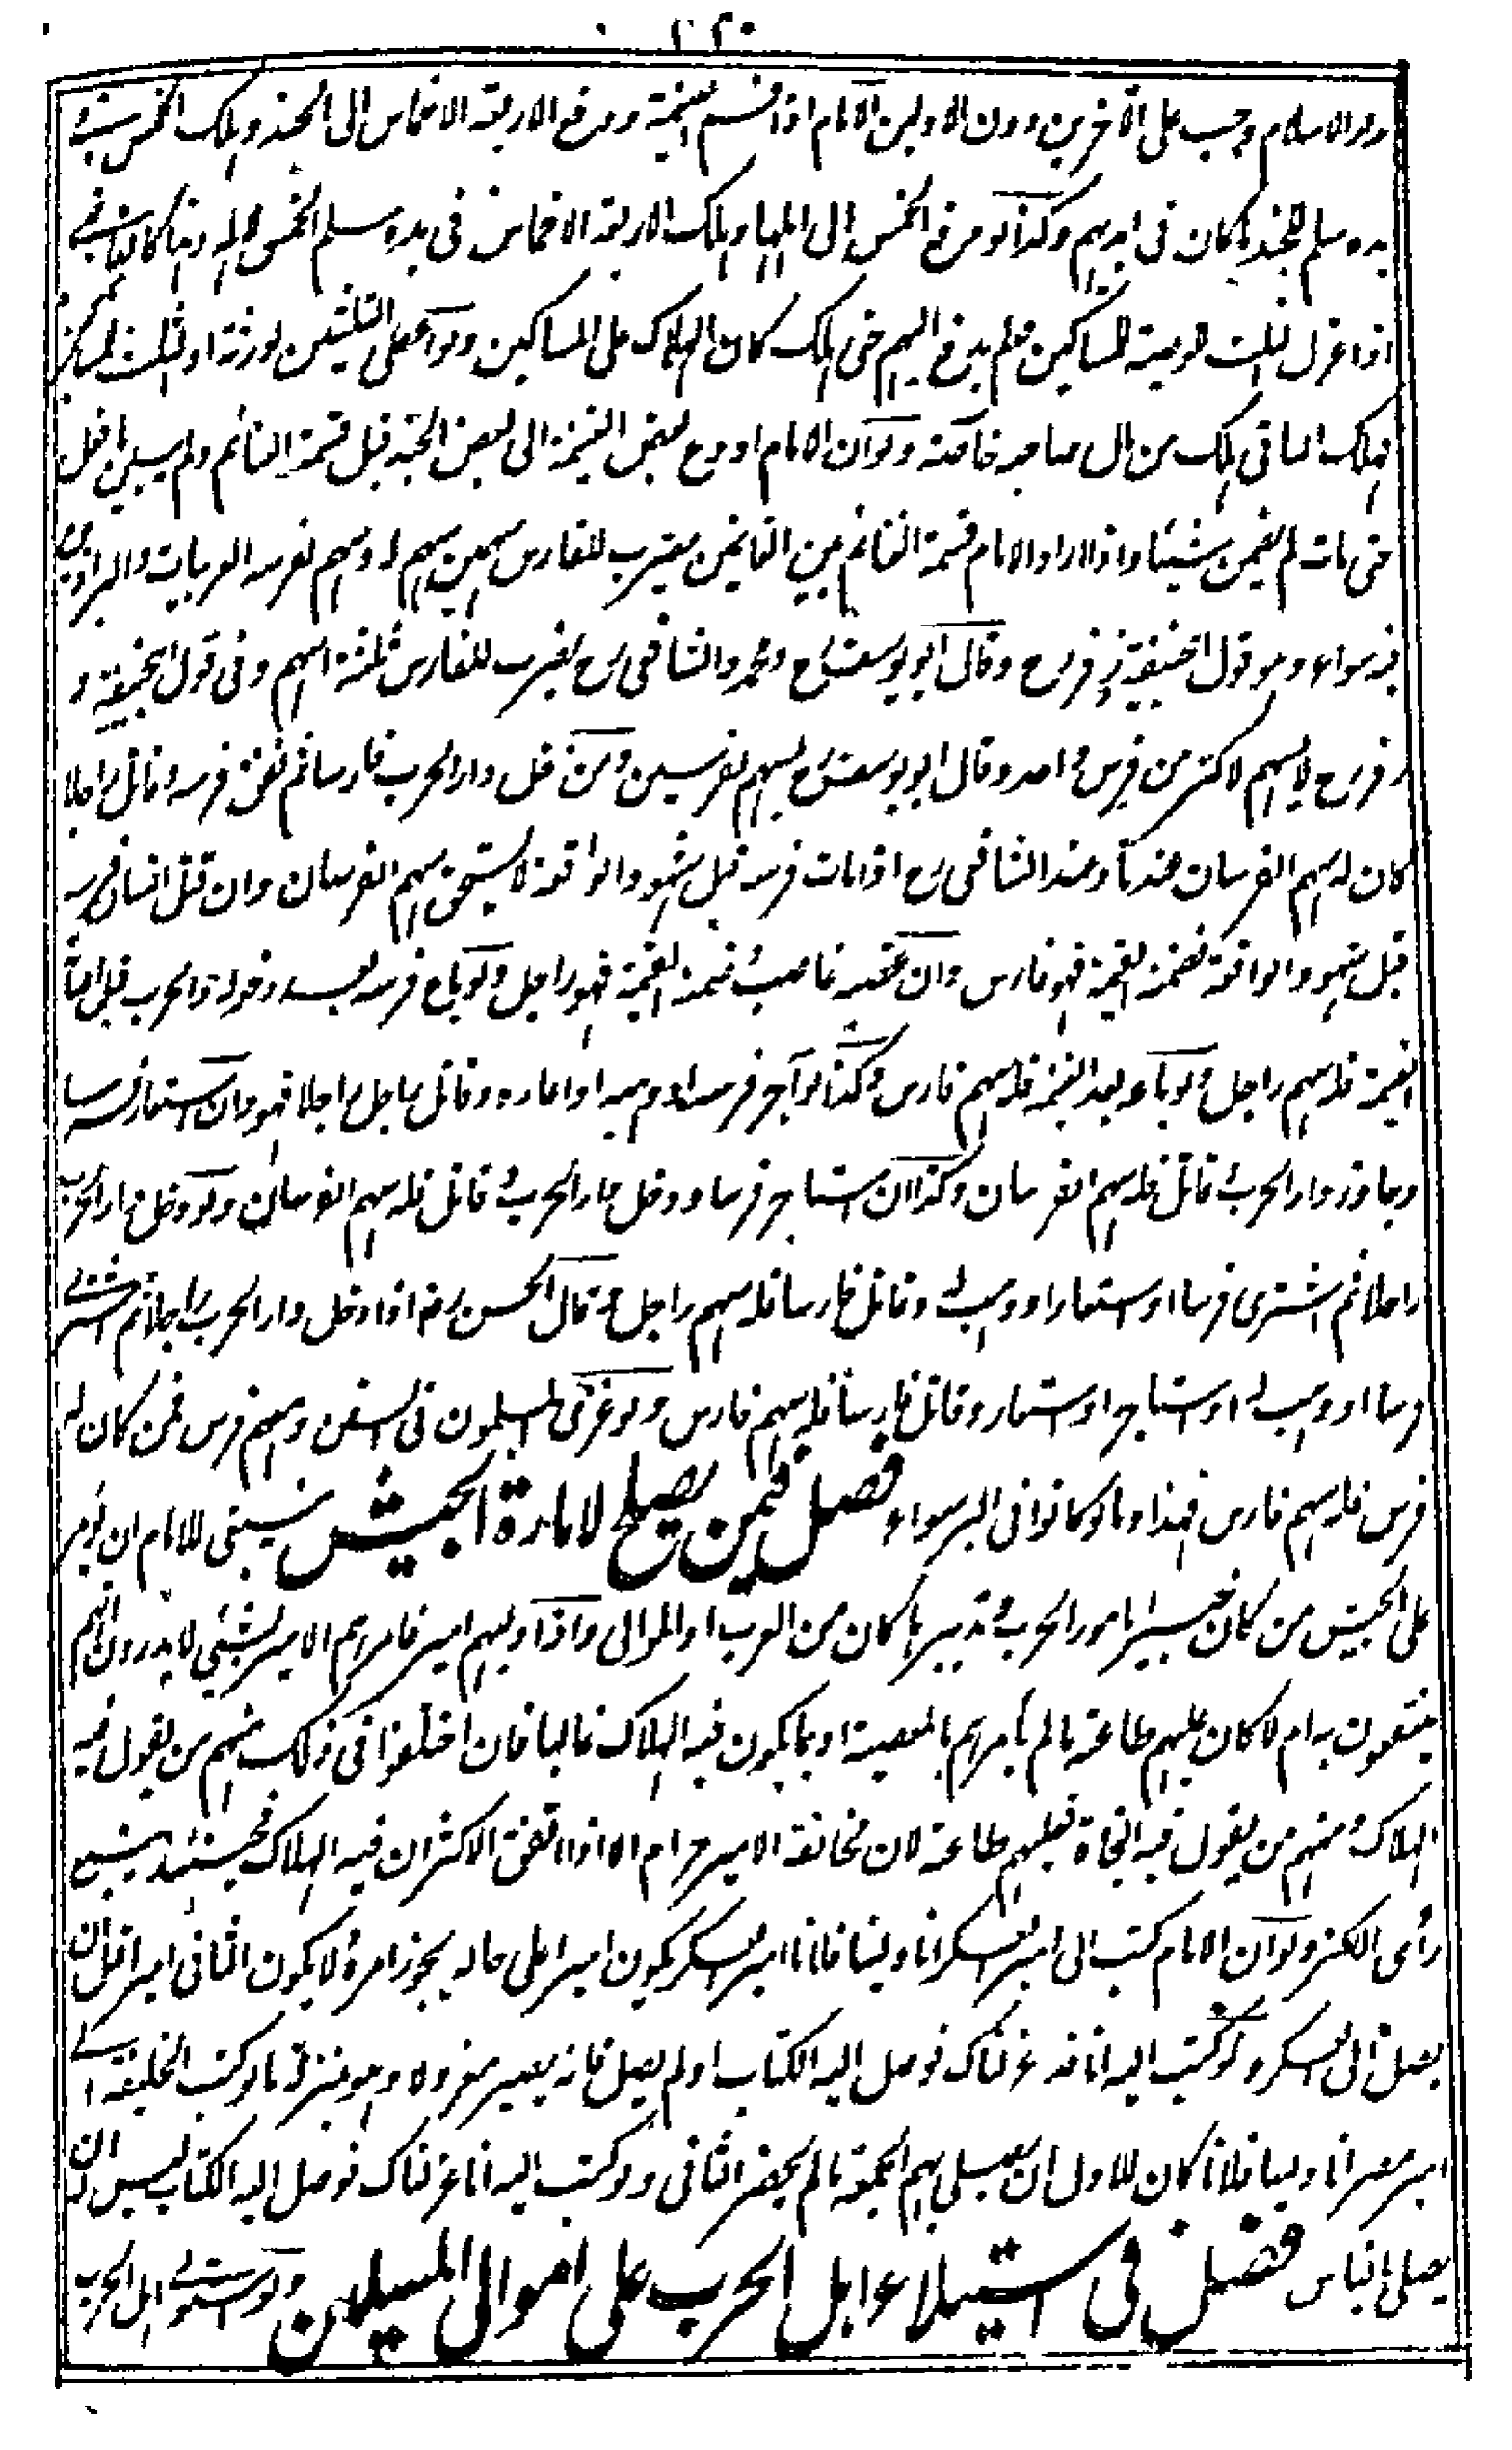 ٢٢٠
دار الاسلام وجب على الآخرين دون الاولين الامام اذا قسم الغنيمة ودفع الاربعة الاخماس الى الجند وهلك الخمس في
يده سلم للجند ما كان فى ايديهم وكذا لو دفع الخمس الى اهلها وهلك الاربعة الاخماس فى يده سلم الخمس لاهله
اذا عزل الثلث الوصية للمساكين فلم يدفع اليهم حتى هلك كان الهلاك على المساكين ولو اعطى الثلثين لورثة او الثلث للمساكين
فهلك الباقى هلك من مال صاحبه خاصة ولو ان الامام اودع بعض الغنيمة الى بعض الجند قبل قسمة الغنائم ولم يبين ما فعل
حتى مات لم يضمن شيئا واذا اراد الامام قسمة الغنائم بين الغانمين يضرب للفارس سهمين سهم له وسهم لفرسه العربيات والبراذين
فيه سواء وهو قول ابيحنيفة وزفر رح وقال ابو يوسف رح ومحمد والشافعى رح يضرب للفارس ثلثة اسهم وفى قول ابيحنيفة و
زفر رح لا يسهم لاكثر من فرس واحد وقال ابو يوسف رح يسهم لفرسين ومن دخل دار الحرب فارسا ثم نفق فرسه وقاتل راجلا
كان له سهم الفرسان عندنا وعند الشافعى رح اذا مات فرسه قبل شهود الواقعة لا يستحق سهم الفرسان وان قتل انسان فرسه
قبل شهود الواقعة فضمنه القيمة فهو فارس وان غصبه غاصب وضمنه القيمة فهو راجل ولو باع فرسه بعد دخول دار الحرب قبل
الغنيمة فله سهم راجل ولو باعه بعد الغنيمة فله سهم فارس وكذا لو آجر فرسه او وهبه او اعاره وقاتل راجلا فهو وان استعار فرسا
وجاوز دار الحرب وقاتل فله سهم الفرسان وكذا ان استاجر فرسا ودخل دار الحرب وقاتل فله سهم الفرسان ولو دخل دار الحرب
راجلا ثم اشترى فرسا او استعار او وهب له وقاتل فارسا فله سهم راجل وعن قال الحسن رح اذا دخل دار الحرب راجلا ثم اشترى
فرسا او وهب له او استاجر او استعار وقاتل فارسا فله سهم فارس ولو غزى المسلمون فى السفن ومعهم فرس فمن كان له
فرس فله سهم فارس فهذا وما لو كانوا فى البر سواء فصل فيمن يصلح لامارة الجيش ينبغى للامام ان يؤمر
على الجيش من كان خبيرا بامور الحرب وتدبيرها كان من العرب او الموالى واذا ولهم امير فامرهم الامير بشىء لا يدرون انهم
ينتفعون به ام لا كان عليهم طاعة ما لم يأمرهم بالمعصية او بما يكون فيه الهلاك غالبا فان اختلفوا فى ذلك منهم من يقول فيه
الهلاك ومنهم من يقول فيه النجاة فعليهم طاعة لان مخالفة الامير حرام الا اذا اتفق الاكثر ان فيه الهلاك فحينئذ يتبع
رأى الاكثر ولو ان الامام كتب الى امير العسكر انا ولينا فلانا امير العسكر يكون اميرا على حاله يجوز امره ولا يكون الثانى اميرا قبل ان
يصل الى العسكر ولو كتب اليه انا قد عزلناك فوصل اليه الكتاب او لم يصل فانه يصير معزولا وهو بمنزلة ما لو كتب الخليفة الى
امير مصر انا ولينا فلانا كان للاول ان يصلى بهم الجمعة ما لم يحضر الثانى ولو كتب اليه انا عزلناك فوصل اليه الكتاب ليس له ان
يصلى بالناس فصل فى استيلاء اهل الحرب على اموال المسلمين ولو استولى اهل الحرب